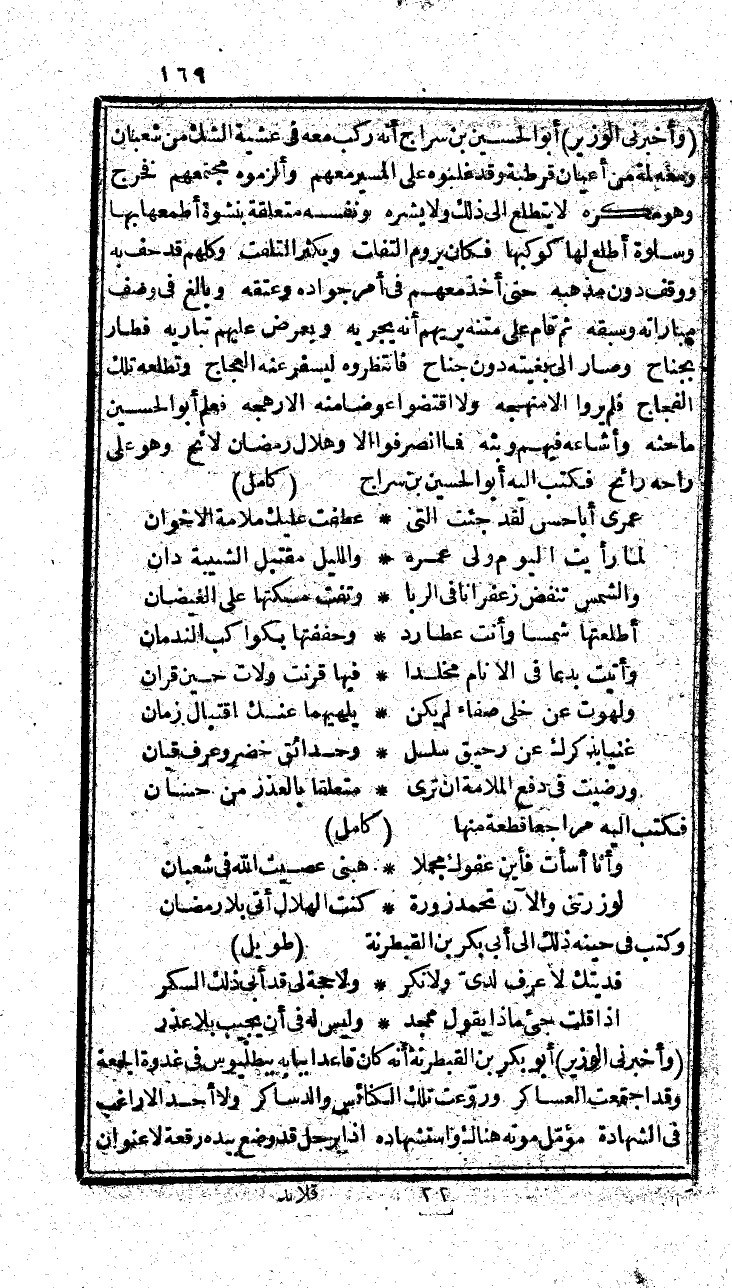 ١٦٩
(وأخبرنى الوزير) أبوالحسين بن سراج أنه ركب معه فى عشية الشك من شعبان
ومعه لمة من أعيان قرطبة وقد غلبوه على المسير معهم وألزموه مجتمعهم فخرج
وهو مكره لا يتطلع الى ذلك ولا يشره ونفسه متعلقة بنشوة أطمعها بها
وسلوة أطلع لها كوكبها فكان يروم التفات ويكثر التلفت وكلهم قد حف به
ووقف دون مذهبه حتى أخذ معهم فى أمر جواده وعتقه وبالغ فى وصف
مباراته وسبقه ثم قام على متنه يريهم أنه يجريه ويعرض عليهم تباريه فطار
بجناح وصار الى بغيته دون جناح فانتظروه ليسفر عنه العجاج وتطلعه تلك
الفجاج فلم يروا الا منهجه ولا اقتضوا عوضا منه الا رهجه فعلم أبوالحسين
ما حثه وأشاعه فيهم وبثه فما انصرفوا الا وهلال رمضان لائح وهو على
راحه رائح فكتب اليه أبوالحسين بن سراج (كامل)
عمرى أبا حسن لقد جئت التى * عطفت عليك ملامة الاخوان
لما رأيت اليوم ولى عمره * والليل مقتبل الشبيبة دان
والشمس تنفض زعفرانا فى الربا * وتفت مسكتها على الغيضان
أطلعتها شمسا وأنت عطارد * وحففتها بكواكب الندمان
وأتيت بدعا فى الانام مخلدا * فيها قرنت ولات حين قران
ولهوت عن خلى صفاء لم يكن * يلهيهما عنك اقتبال زمان
غنيا بذكرك عن رحيق سلسل * وحدائق خضر وعرف قيان
ورضيت فى دفع الملامة ان ترى * متعلقا بالعذر من حسان
فكتب اليه مراجعا قطعة منها (كامل)
وأنا أسأت فأين عفوك مجملا * هبنى عصيت الله فى شعبان
لوزرتنى والآن تحمد زورة * كنت الهلال أتى بلا رمضان
وكتب فى حينه ذلك الى أبى بكر بن القبطرنة (طويل)
فديتك لا عرف لدى ولا نكر * ولا حجة لى قد أبى ذلك السكر
اذا قلت جئ ماذا يقول ممجد * وليس له فى أن يجيب بلا عذر
(وأخبرنى الوزير) أبو بكر بن القبطرنة أنه كان قاعدا ببابه ببطليوس فى غدوة الجمعة
وقد اجتمعت العساكر وروّعت تلك الكنائس والدساكر ولا أحد الا راغب
فى الشهادة مؤمّل موته هنالك واستشهاده اذا برجل قد وضع بيده رقعة لا عنوان
٢٢ قلائد